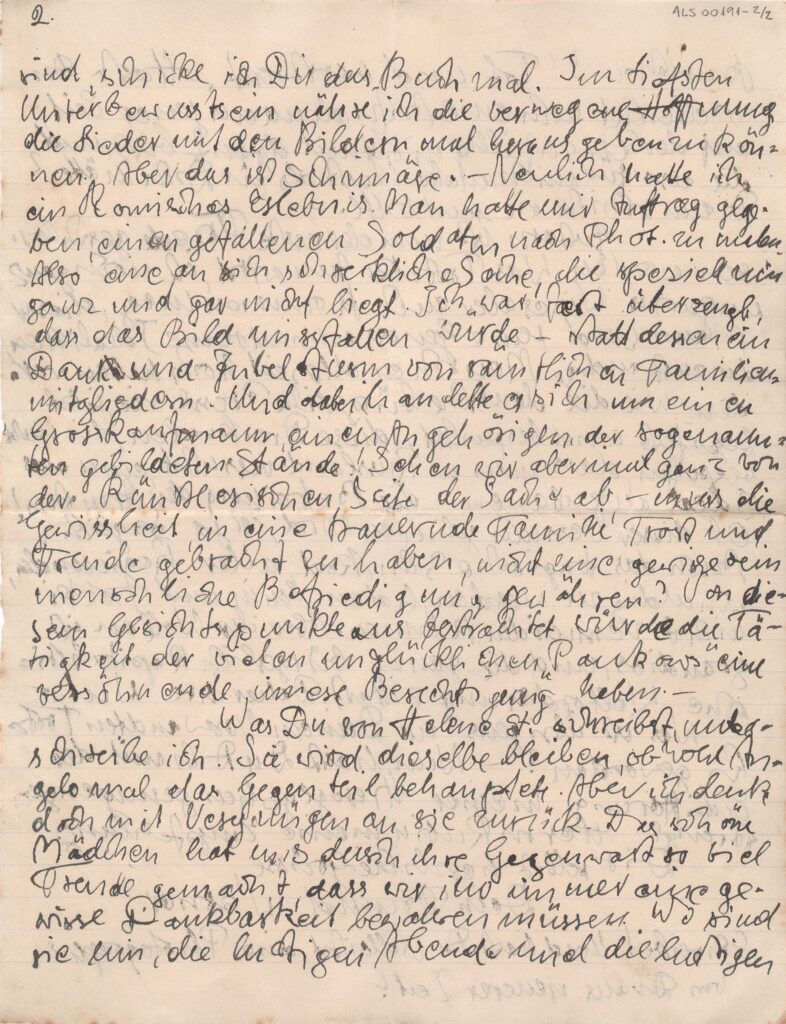 2.
ALS 00191-2/2
sind, schicke ich Dir das Buch mal. Im tiefsten
Unterbewusstsein nähre ich die verwegene Hoffnung
die Lieder mit den Bildern mal herausgeben zu kön-
nen. Aber das ist Schimäre. - Neulich hatte ich
ein komisches Erlebnis. Man hatte mir Auftrag gege-
ben, einen gefallenen Soldaten nach Phot. zu malen.
Also eine an sich schreckliche Sache, die speziell mir
ganz und gar nicht liegt. Ich war fest überzeugt,
dass das Bild missfallen würde - statt dessen ein
Dank und Jubelsturm von sämtlichen Familien-
mitgliedern. Und dabei handelte es sich um einen
Grosskaufmann, einen Angehörigen der sogenann-
ten gebildeten Stände! Sehen wir aber mal ganz von
der künstlerischen Seite der Sache ab - muss die
Gewissheit, in eine trauernde Familie Trost und
Freude gebracht zu haben, nicht eine gewisse rein
menschliche Befriedigung gewähren? Von die-
sem Gesichtspunkte aus betrachtet würde die Tä-
tigkeit der vielen unglücklichen "Pankows" eine
versöhnende, innere Berechtigung haben. -
Was Du von Helene St. schreibst, unter-
schreibe ich. Sie wird dieselbe bleiben, obwohl An-
gelo mal das Gegenteil behauptete. Aber ich denke
doch mit Vergnügen an sie zurück. Das schöne
Mädchen hat uns durch ihre Gegenwart so viel
Freude gemacht, dass wir ihr immer eine ge-
wisse Dankbarkeit bewahren müssen. Wo sind
sie nun, die lustigen Abende und die lustigen